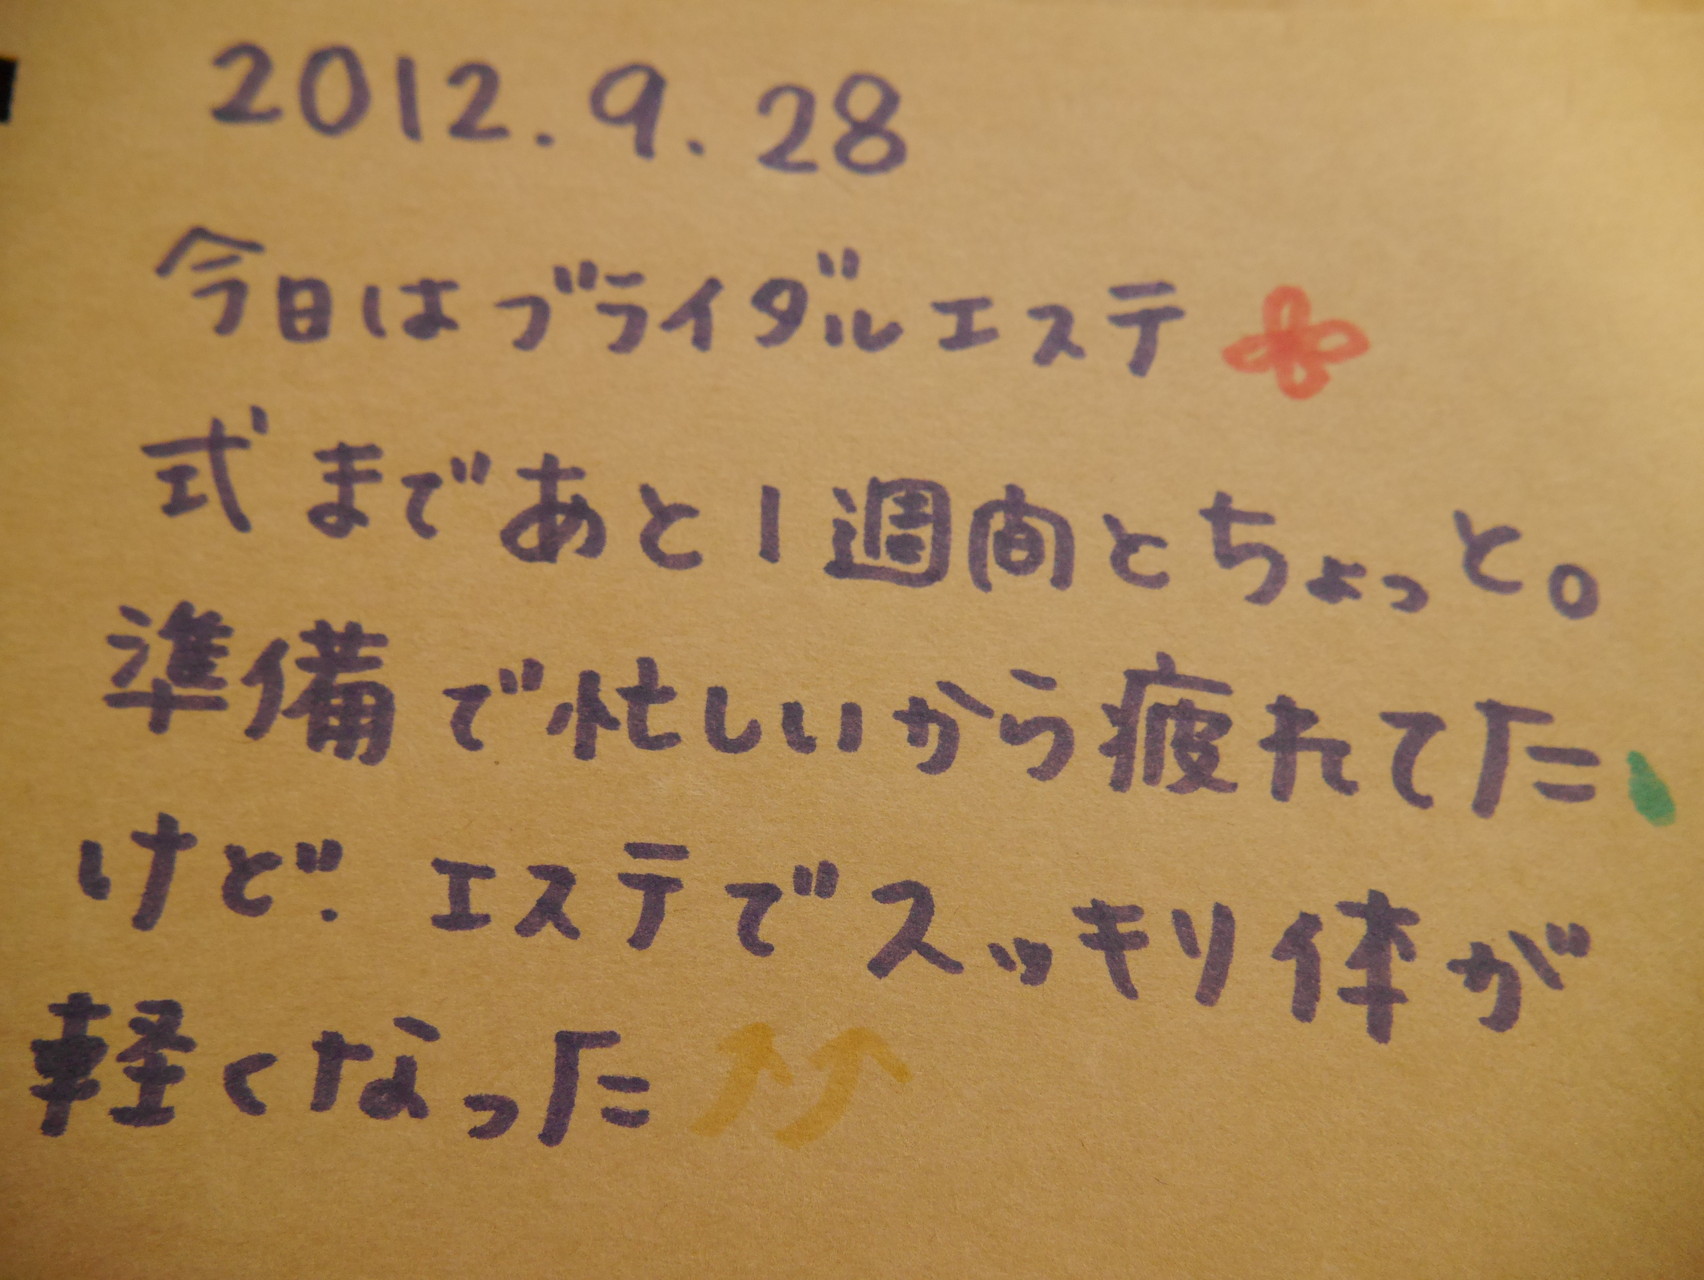 2012.9.28
今日はブライダルエステ
式まであと1週間とちょっと。
準備で忙しいから疲れてた
けど、エステでスッキリ体が
軽くなった↑↑